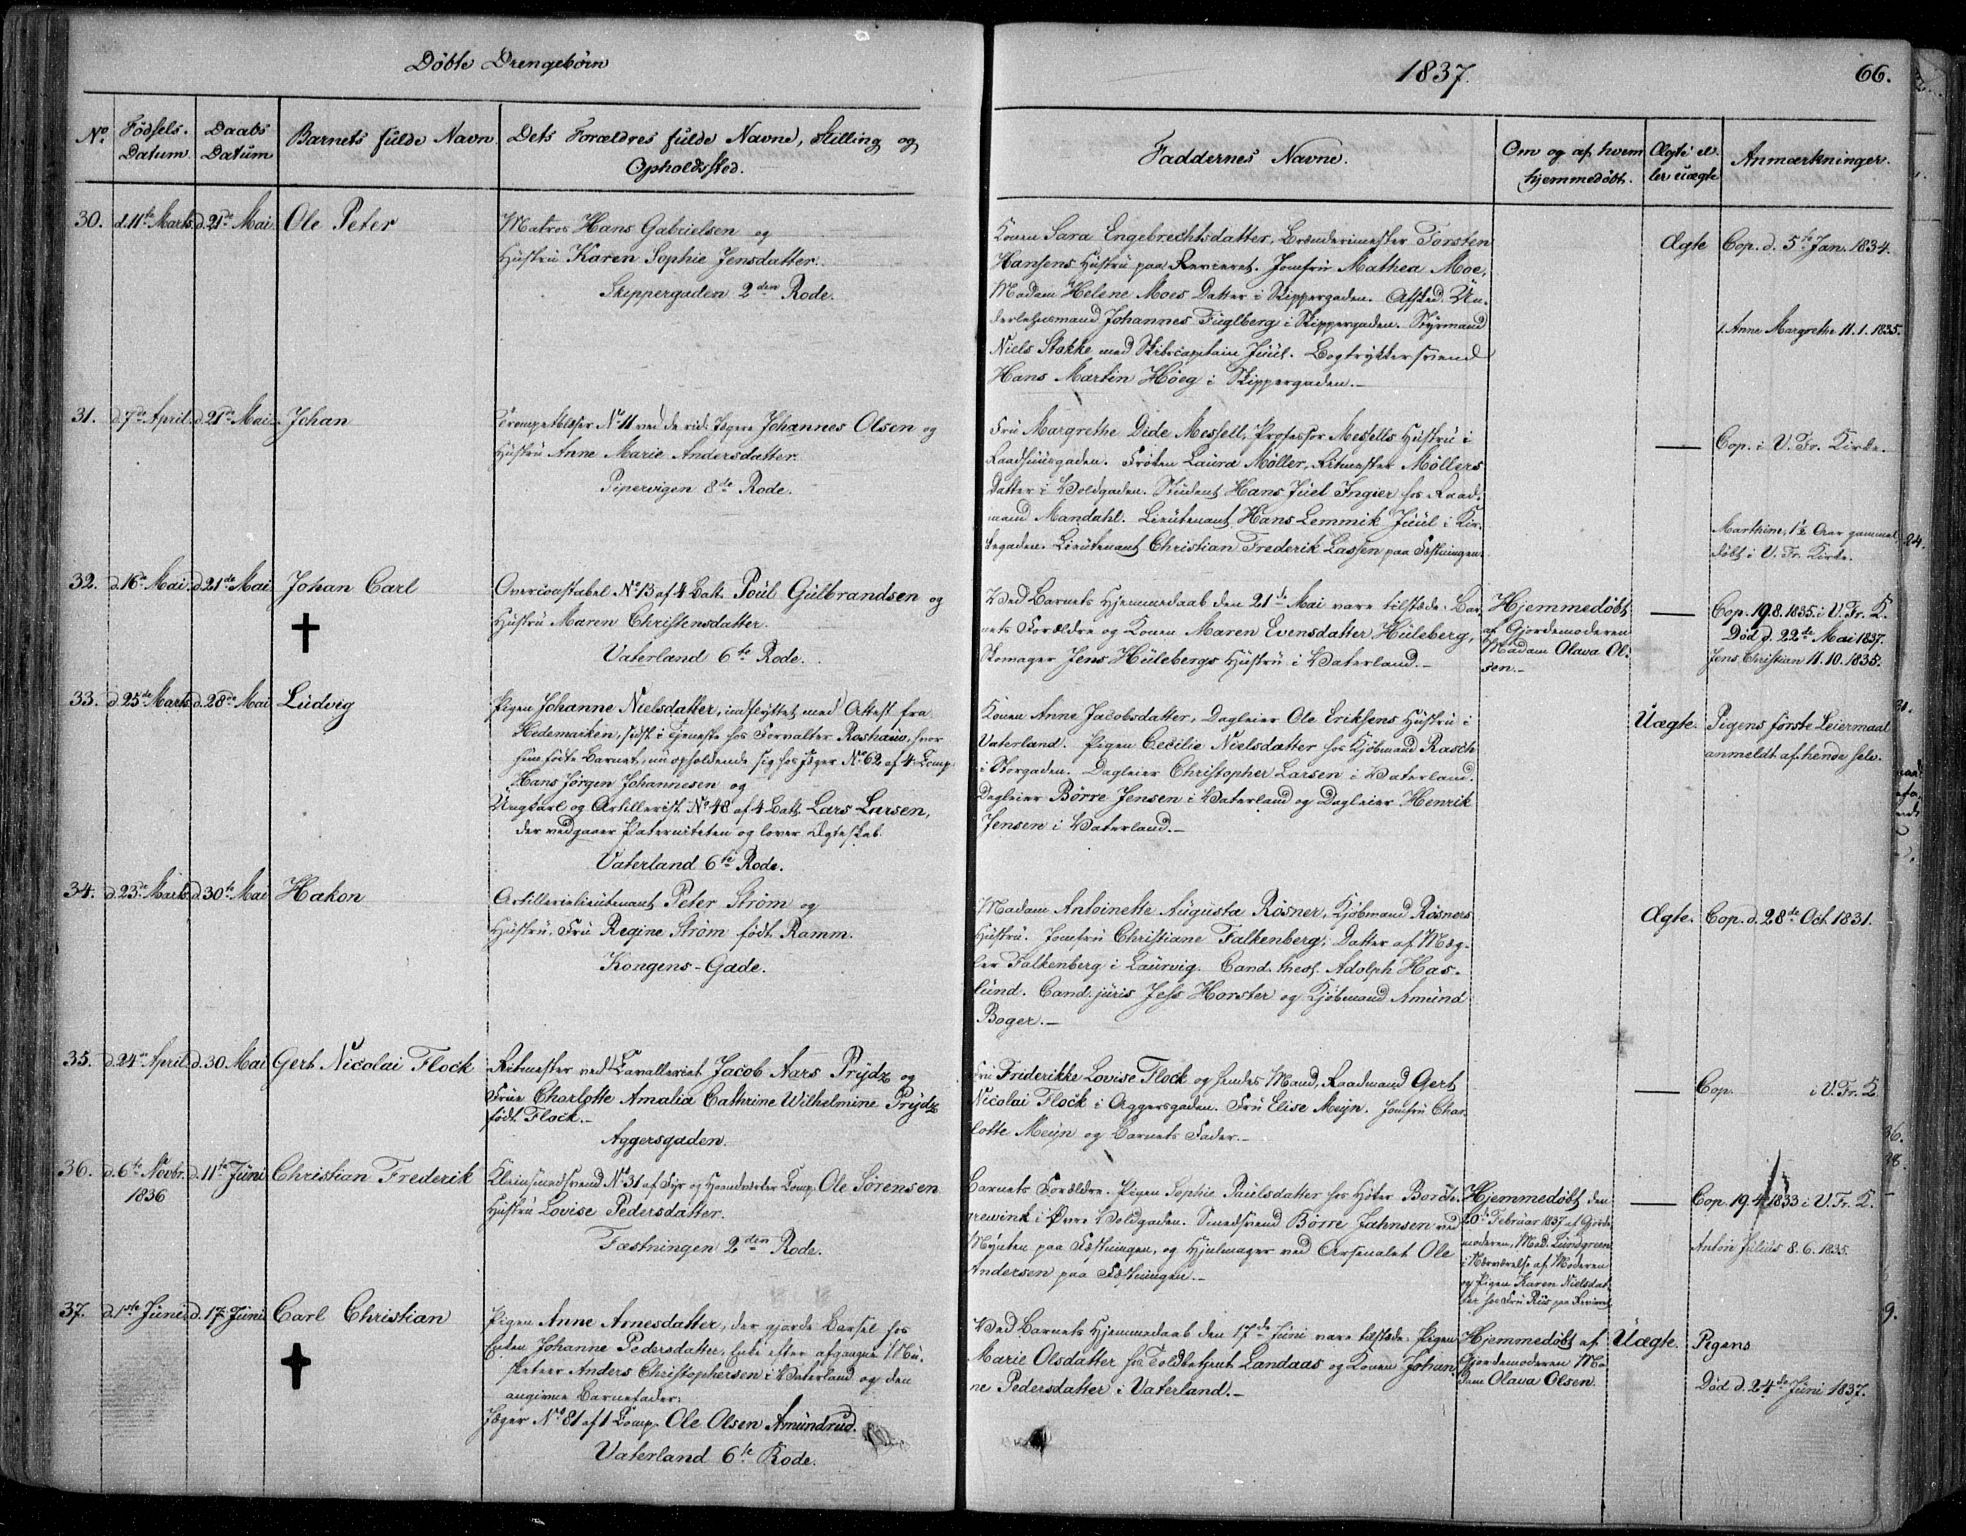 Døbte Drengebørn
1837.
66.
No.
Fødsels-
Datum
Daabs
Datum
Barnets fulde Navn
Dets Forældres fulde Navne, Stilling og
Opholdssted.
Faddernes Navne.
Om og af hvem
hjemmedøbt.
Ægte el-
ler uægte
Anmærkninger.
30. d. 11te Marts d. 21de Mai Ole Peter
Matros Hans Gabrielsen og
Hustru Karen Sophie Jensdatter.
Skippergaden 2den Rode.
Konen Sara Engebrechtsdatter, Brænderimester Torsten
Hansens Hustru paa Revieret. Jomfru Mathea Moe,
Madam Helene Moes Datter i Skippergaden. Afsked. Un-
derlehnsmand Johannes Fuglberg i Skippergaden. Styrmand
Niels Stakke med Skibscapitain Juul. Bogtrykkersvend
Hans Martin Høeg i Skippergaden.-
Ægte
Cop. d. 5te Jan. 1834.
1. Anne Margrethe 11.1.1835.
31. d. 7de April d. 21de Mai Johan
Trompetblæser No 11 ved de rid. Jægere Johannes Olsen og
Hustru Anne Marie Andersdatter.
Pipervigen 8de Rode.
Fru Margrethe Dide Messell, Professor Messells Hustru i
Raadhuusgaden. Frøken Laura Møller, Ritmester Møllers
Datter i Voldgaden. Student Hans Juel Ingier hos Raad-
mand Mandahl. Lieutenant Hans Lemmik Juul i Kir-
kegaden. Lieutenant Christian Frederik Lassen paa Fæstningen.
Cop. i V. Fr. Kirke.
Marthine, 1½ Aar gammel
døbt i V. Fr. Kirke.
32. d. 16de Mai d. 21de Mai Johan Carl
Overconstabel No 13 af 4 Batt. Poul Gulbrandsen og
Hustru Maren Christensdatter.
Vaterland 6te Rode.
Ved Barnets Hjemmedaab den 21de Mai vare tilstæde: Bar-
nets Forældre og Konen Maren Evensdatter Huleberg,
Skomager Jens Hulebergs Hustru i Vaterland.-
Hjemmedøbt
af Gjordemoderen
Madam Olava Ol-
sen.-
Cop. 19.8.1835 i V. Fr. K.
Død d. 22de Mai 1837.
Jens Christian 11.10.1835.
33. d. 25de Marts d. 28de Mai Ludvig
Pigen Johanne Nielsdatter, indflyttet med Attest fra
Hedemarken, sidst i Tjeneste hos Forvalter Roshauw, hvor
hun fødte Barnet, nu opholdende sig hos Jæger No 62 af 4. Comp.
Hans Jørgen Johannesen og
Ungkarl og Artillerist No 48 af 4 Batt. Lars Larsen,
der vedgaaer Paterniteten og lover Ægteskab.
Vaterland 6te Rode.
Konen Anne Jacobsdatter, Dagleier Ole Eriksens Hustru i
Vaterland. Pigen Cecilie Nielsdatter hos Kjøbmand Rasch
i Storgaden. Dagleier Christopher Larsen i Vaterland.
Dagleier Børre Jensen i Vaterland og Dagleier Henrik
Jensen i Vaterland.-
Uægte.
Pigens første Leiermaal
anmeldt af hende selv.
34. d. 23de Marts d. 30te Mai Hakon
Artillerielieutenant Peter Strøm og
Hustru, Fru Regine Strøm født Ramm.
Kongens-Gade.
Madam Antoinette Augusta Rösner, Kjøbmand Rösners
Hustru. Jomfru Christiane Falkenberg, Datter af Mæg-
ler Falkenberg i Laurvig. Cand. theol. Adolph Has-
lund. Cand. juris Jess Horster og Kjøbmand Amund
Boger.-
Ægte.
Cop. d. 28de Oct. 1831.
35. d. 24de April d. 30 Mai Gert Nicolai Flock
Ritmester ved Cavalleriet Jacob Aars Prydz og
Frue Charlotte Amalia Cathrine Wilhelmine Prydz
født Flock.-
Aggersgaden.
Fru Friderikke Lovise Flock og hendes Mand, Raadmand Gert
Nicolai Flock i Aggersgaden. Fru Elise Meyn. Jomfru Char-
lotte Meyn og Barnets Fader.-
Cop. i V. Fr. K.
36. d. 6te Novbr. 1836 d. 11te Juni Christian Frederik
Kleinsmedsvend No 31 af Fyr og Haandværker Comp. Ole Sørensen
Hustru Lovise Pedersdatter.
Fæstningen 2den Rode.
Barnets Forældre. Pigen Sophie Paulsdatter hos Høker Borch-
grewink i Øvre Voldgaden. Smedsvend Børre Jahnsen ved
Mynten paa Fæstningen, og Hjulmager ved Arsenalet Ole
Andersen paa Fæstningen.-
Hjemmedøbt den
20de Februar 1837 af Gjorde
moderen, Mad. Lundgreen
i Nærværelse af Moderen
og Pigen Karen Nielsdat-
ter hos Fru Riis paa Revieret
Cop. 19.4.1833 i V. Fr. K.
Anton Julius 8.6.1835.
37. d. 1ste Juni d. 17de Juni Carl Christian
Pigen Anne Arnesdatter, der gjorde Barsel hos
Enken Johanne Pedersdatter, Enke efter afgangne Mu-
sketeer Anders Christophersen i Vaterland og den
angivne Barnefader:
Jæger No 81 af 1 Comp. Ole Olsen Amundrud.
Vaterland 6te Rode.
Ved Barnets Hjemmedaab den 17de Juni vare tilstæde: Pigen
Marie Olsdatter hos Toldbetjent Landaas og Konen Johan-
ne Pedersdatter i Vaterland.-
Hjemmedøbt af
Gjordemoderen Ma-
dam Olava Olsen.
Uægte.
Pigens
Død d. 24de Juni 1837.